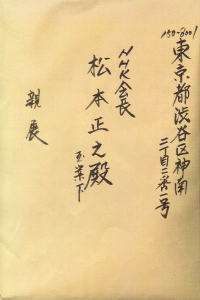 150-8001
東京都渋谷区神南
二丁目二番一号
NHK会長
松本正之殿
玉案下
親展